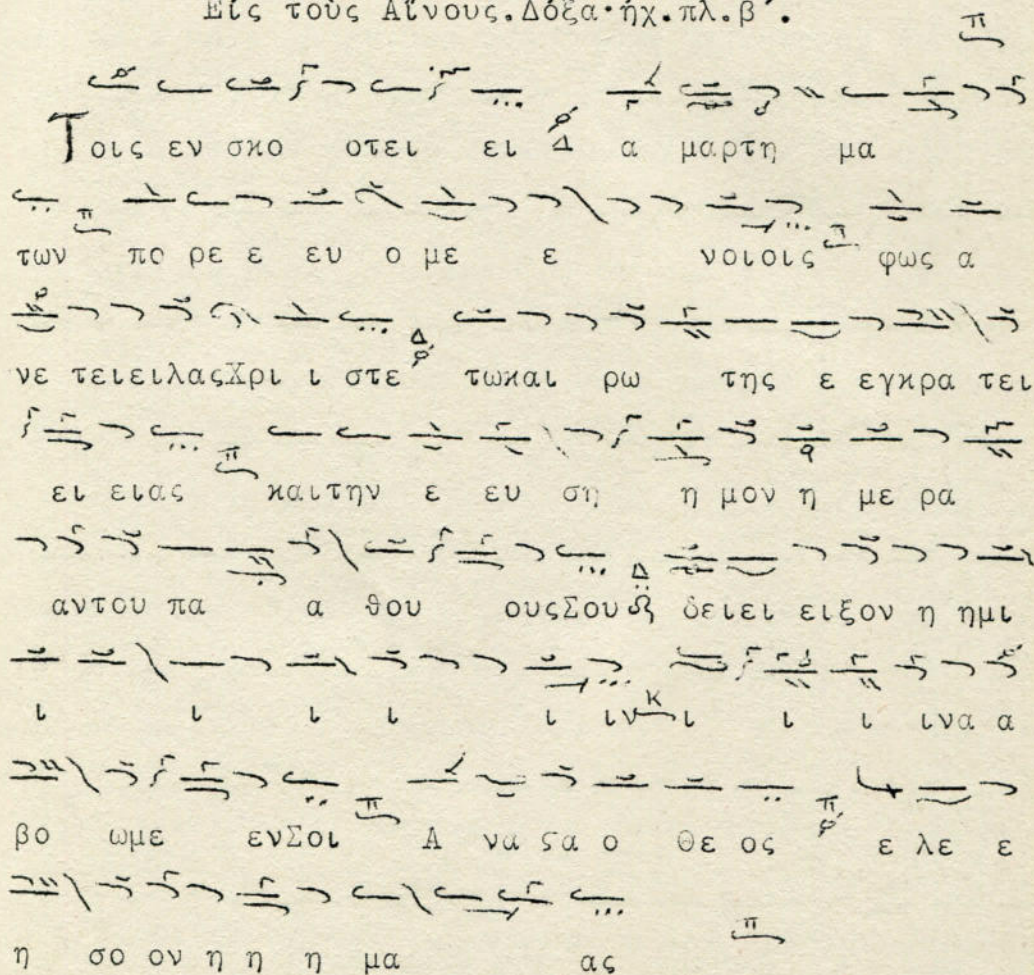 Εἰς τοὺς Αἴνους. Δόξα· ἦχ. πλ. β´.
Τοις εν σκο οτει ει α μαρτη μα
των πο ρε ε ευ ο με ε νοιοις φως α
νε τειειλαςΧρι ι στε τωκαι ρω της ε εγκρα τει
ει ειας καιτην ε ευ ση η μον η με ρα
αντου πα α θου ουςΣου δειει ειξον η ημι
ι ι ι ι ι ιν ι ι ι ινα α
βο ωμε ενΣοι Α να ϛα ο Θε ος ε λε ε
η σο ον η η η μα ας